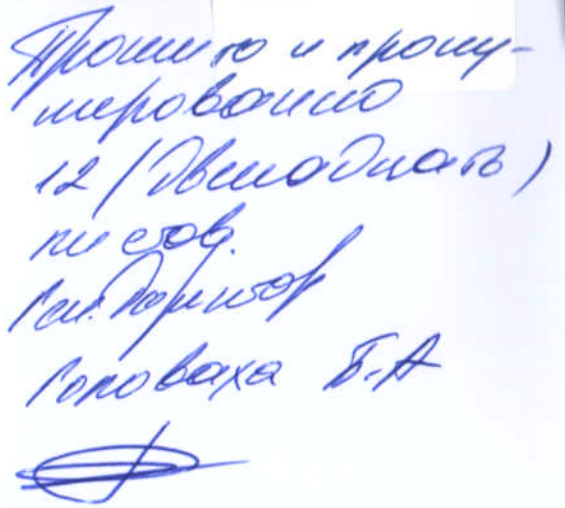 Прошито и прону-
меровано
12 (двенадцать)
листов.
Ген. директор
Головаха Б.А